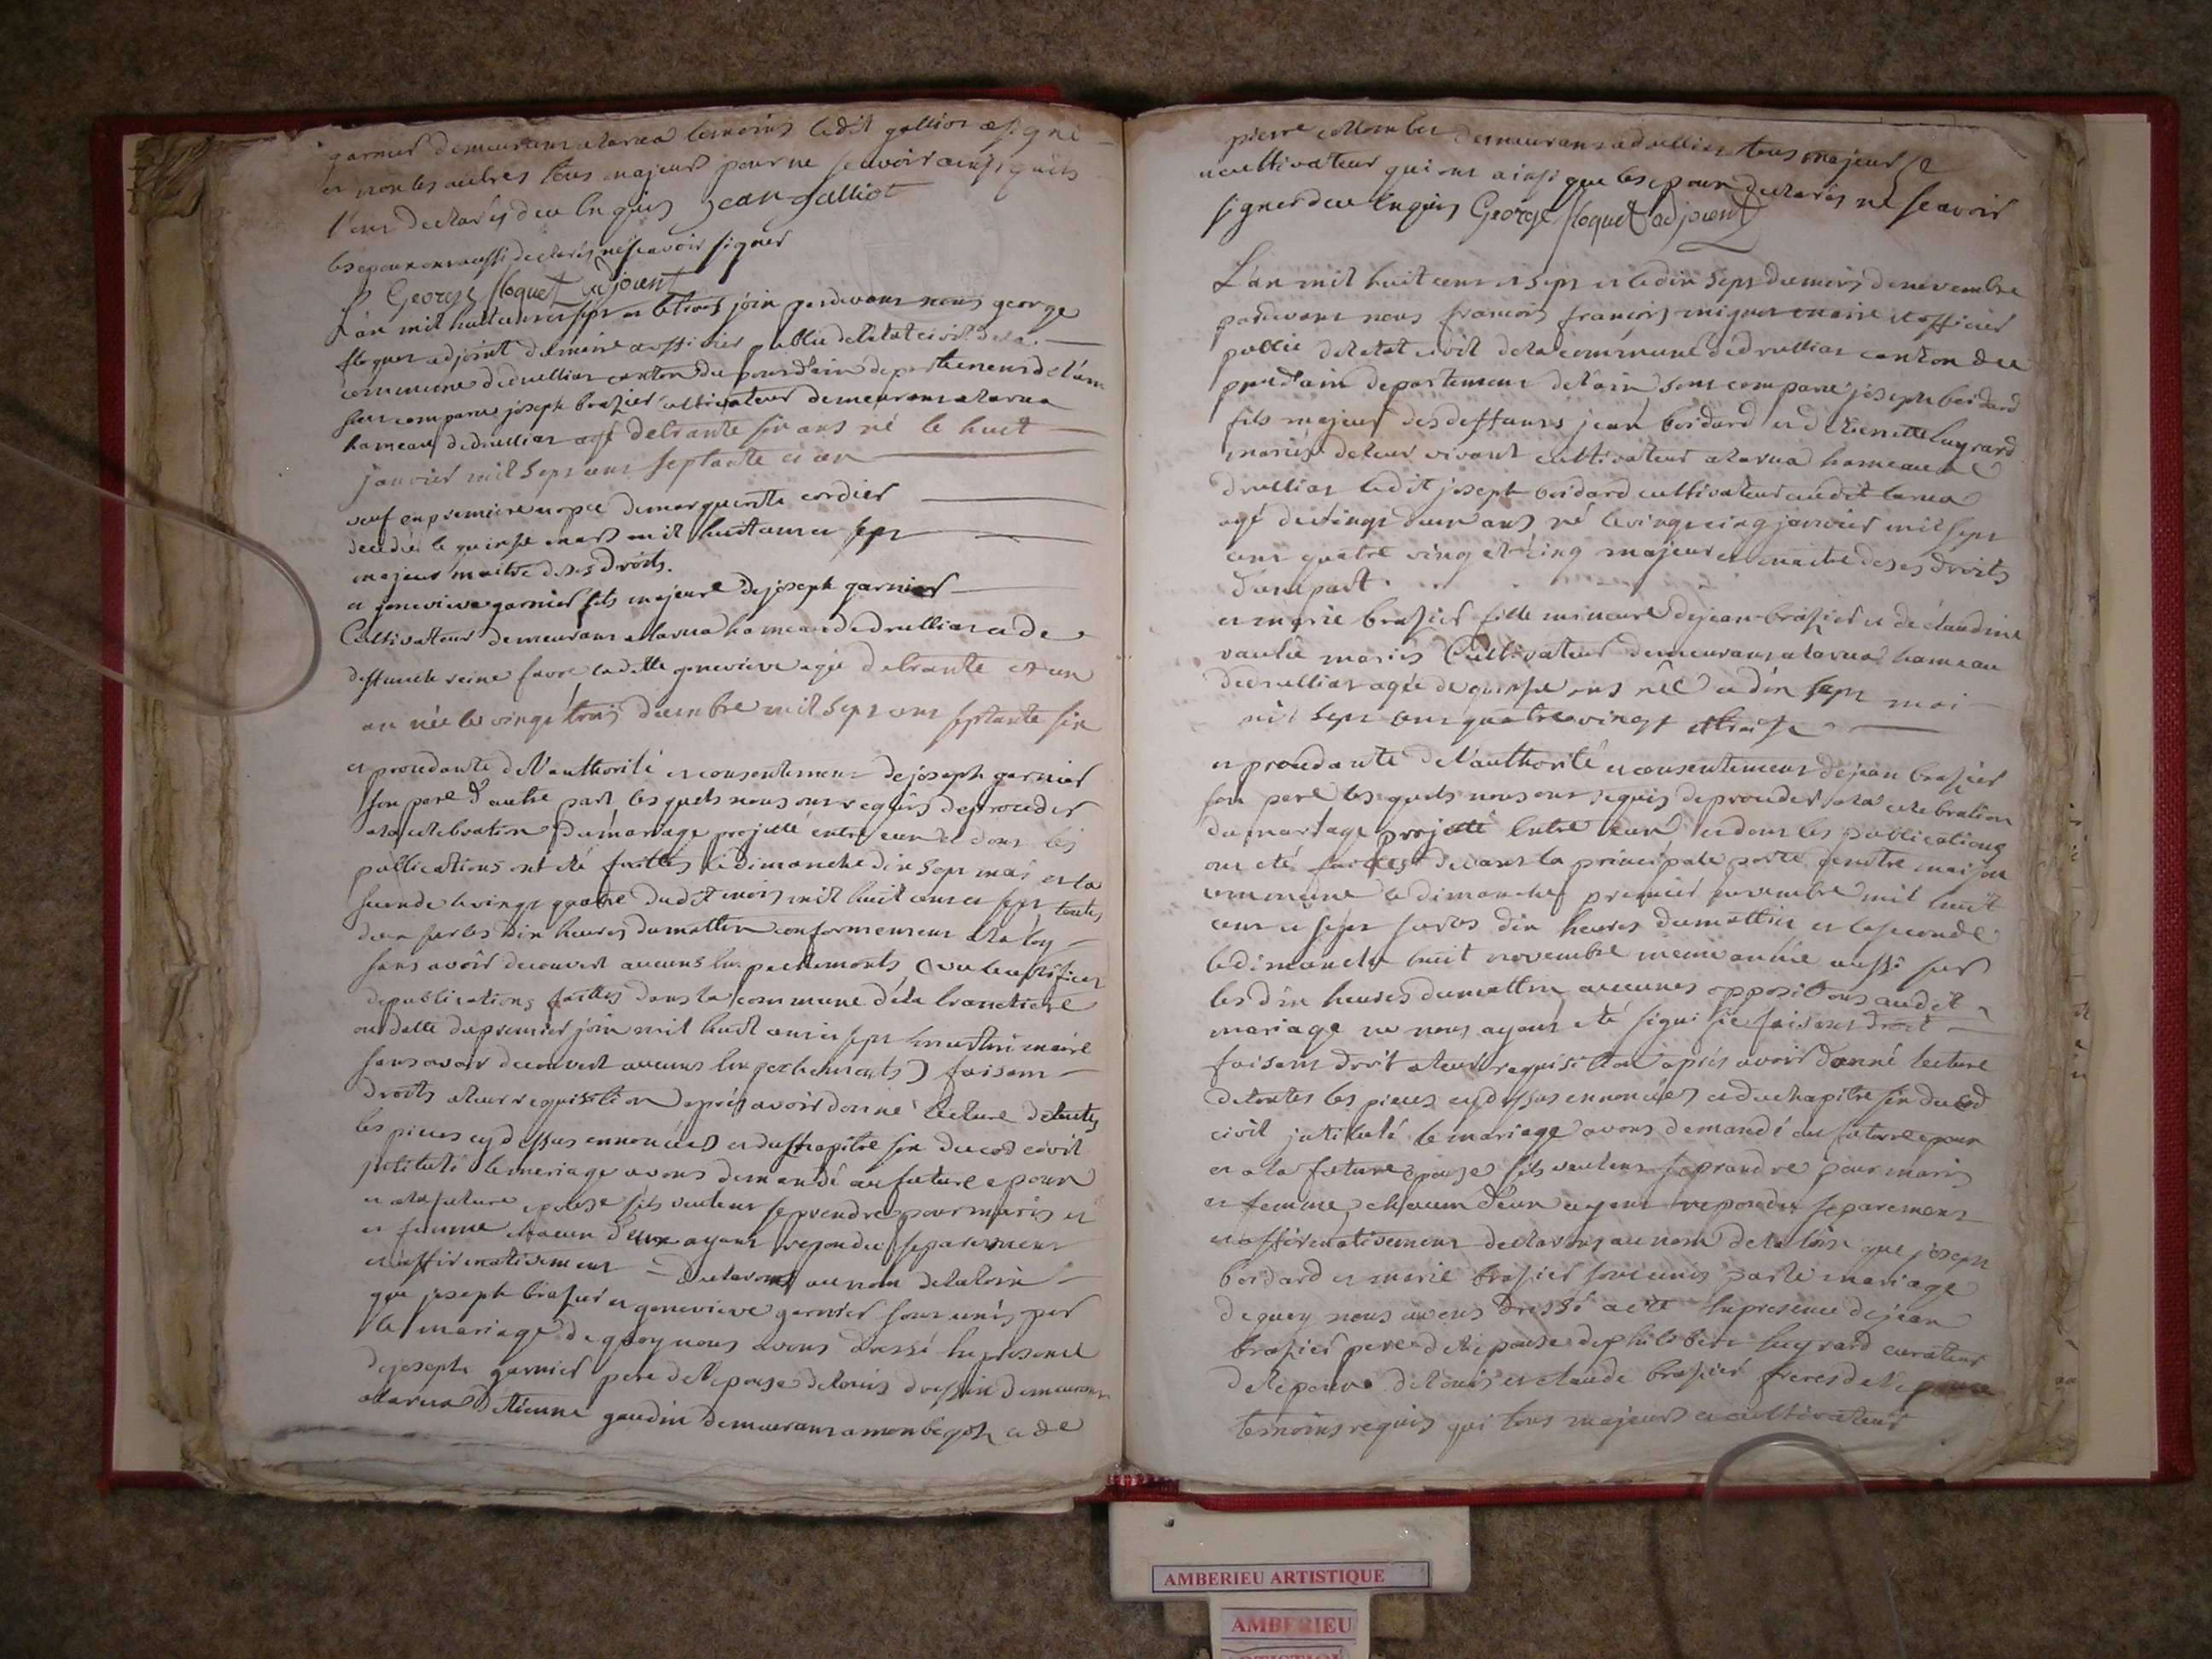 garnier demeurans a larna temoins ledit galliot a signé
et non les autres tous majeurs pour ne scavoir ainsi quils
l'ont declarés deu enquis jean galliot
les epoux ont aussi declarés ne scavoir signer
George floquet adjoient
L'an mil huit cent et sept et le trois join pardevant nous george
floquet adjoint du maire officier public de letat civil de la
commune de druillias canton du pont d'ain departement de l'ain
sont comparu joseph brasier cultivateur demeurant a larna
hameau de druillias agé de trante six ans né le huit
janvier mil sept cent septante et un
veuf en premiere nopce de marguerite cordier
decedée le quinse mars mil huit cent et sept
majeur maitre de ses droits.
et genevieve garnier majeure de joseph garnier
Cultivateur demeurant a larna hameau de druillias et de
deffuncte reine favre laditte genevieve agée de trante et un
an née le vingt trois decembre mil sept cent septante six
et procedante de l'authorité et consentement de joseph garnier
son pere d'autre part lesquels nous ont requis de proceder
a la celebration du mariage projetté entre eux et dont les
publications ont été faittes le dimanche dix sept mai et la
seconde le vingt quatre dudit mois mil huit cent et sept toutes
deux sur les dix heures du mattin conformement a la loy
sans avoir decouvert aucuns empechements (vu le certificat
de publications faittes dans la commune de la tranctiere
en datte du premier join mil huit cent et sept maire
sans avoir decouvert aucuns empechements) faisant
droits a leur requisition apres avoir donné lecture de toutes
les pieces cy dessus ennoncées et du chapitre six du cod civil
jntitulé le mariage avons demandé au future epoux
et a la future epouse sils veulent se prendre pour maris et
et femme chacun d'eux ayant repondu separement
et affirmativement declarons au nom de la loix
que joseph brasier et genevieve garnier sont unis par
le mariage de quoy nous avons dressé en presence
de joseph garnier pere de l'epouse de louis demeurant
a larna d'etienne gaudin demeurant a monbegoz et de
pierre collombet demeurant a druillias tous majeur
cultivateur qui ont ainsi que les epoux declarés ne scavoir
signer deu enquis George floquet adjoient
L'an mil huit cent et sept et le dix sept du mois de novembre
pardevant nous francois mignot maire et officier
public de letat civil de la commune de druillias canton du
pont d'ain departement de l'ain sont comparu joseph boidard
fils majeur des deffuncts jean boidard et d'etiennette luyrard
mariés de leur vivant cultivateur a larna hameau de
druillias ledit joseph boidard cultivateur audit larna
agé de vingt deux ans né le vingt cinq janvier mil sept
cent quatre vingt et cinq majeur et maitre de ses droits
d'une part.
et marie brasier fille mineure de jean brasier et de claudine
vaulié mariés Cultivateur demeurant a larna hameau
de druillias agée de quinse ans née le dix sept mai
mil sept cent quatre vingt
et procedante de l'authorité et consentement de jean brasier
son pere lesquels nous ont requis de proceder a la celebration
du mariage projetté entre eux et dont les publications
ont eté faittes devant la principale porte de notre maison
commune le dimanche premier novembre mil huit
cent et sept sur les dix heures du mattin et la seconde
le dimanche huit novembre meme année aussi sur
les dix heures du mattin aucunes oppositions audit
mariage ne nous ayant eté signifié faisant droit
faisant droit a leur requisition apres avoir donné lecture
de toutes les pieces cy dessus ennoncées et du chapitre six du cod
civil jntitulé le mariage avons demandé au future epoux
et a la future epouse sils veulent se prendre pour maris
et femme chacun d'eux ayant repondu separement
et affirmativement declarons au nom de la loix que joseph
boidard et marie brasier sont unis par le mariage
de quoy nous avons dressé acte en presence de jean
brasier pere de l'epouse de philibert luyrard curateur
de l'epoux de louis et claude brasier freres de l'epouse
temoins requis qui tous majeurs et cultivateurs
AMBERIEU ARTISTIQUE
AMBERIEU